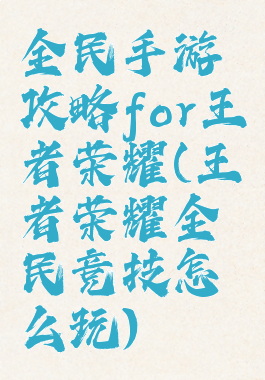 全民手游
攻略for王
者荣耀(王
者荣耀全
民竞技怎
么玩)